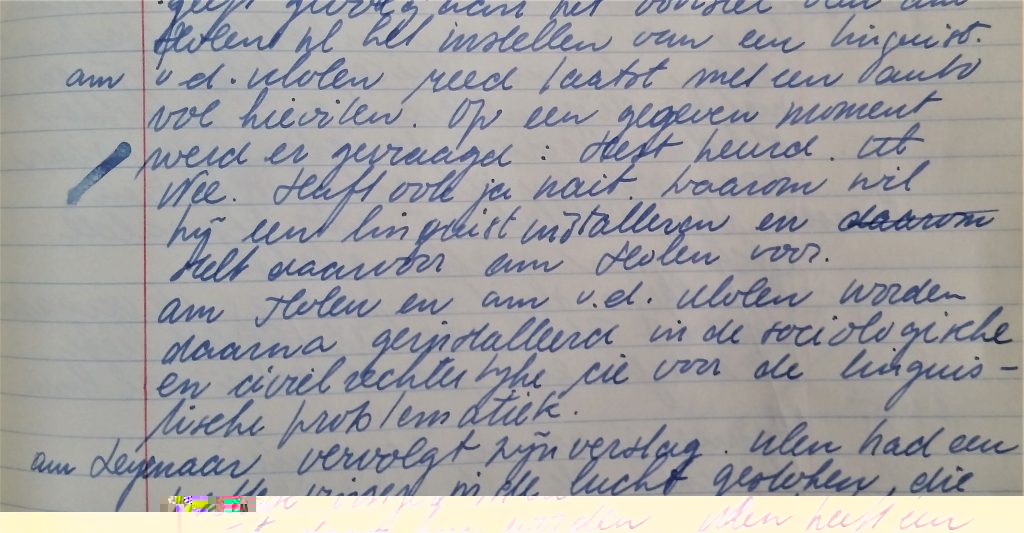 geeft gevolg aan het voorstel van am
Stolen nl het instellen van een linguist.
am v.d. Molen reed laatst met een auto
vol hievilen. Op een gegeven moment
werd er gevraagd : Heft heurd.
Nee. Heft ook ja nait. Waarom wil
hij een linguist installeren en daarom
stelt daarvoor am Stolen voor.
am Stolen en am v.d. Molen worden
daarna geinstalleerd in de sociologische
en civielrechtelijke cie voor de linguis-
tische problematiek.
am Leijenaar vervolgt zijn verslag. Men had een
vinger in de lucht gestoken, die
worden Men heeft een